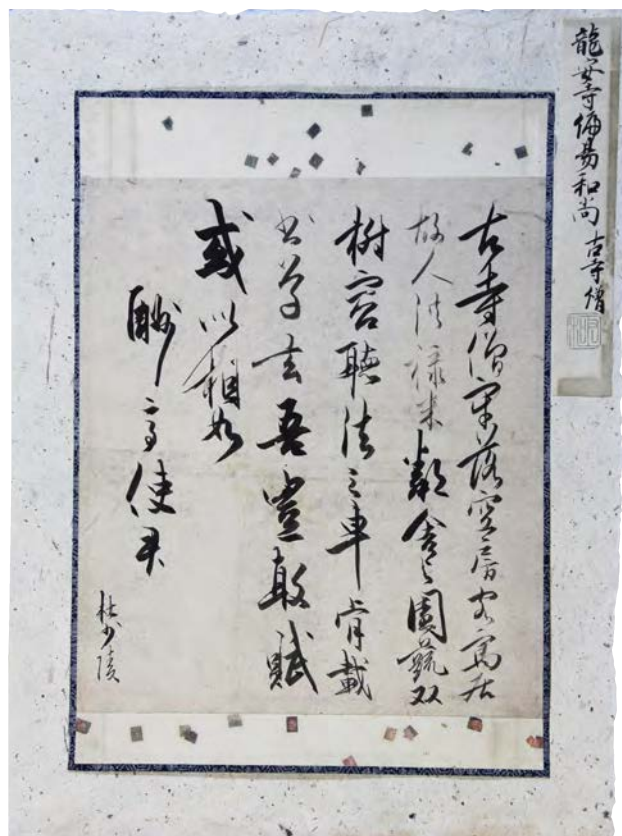 龍安寺偏易和尚 古寺僧
古寺僧牢落空房客寓居
故人供祿米鄰舍与園蔬双
樹容聴法三車肯載
书草玄吾豈敢賦
或以相如
酬高使君
杜少陵